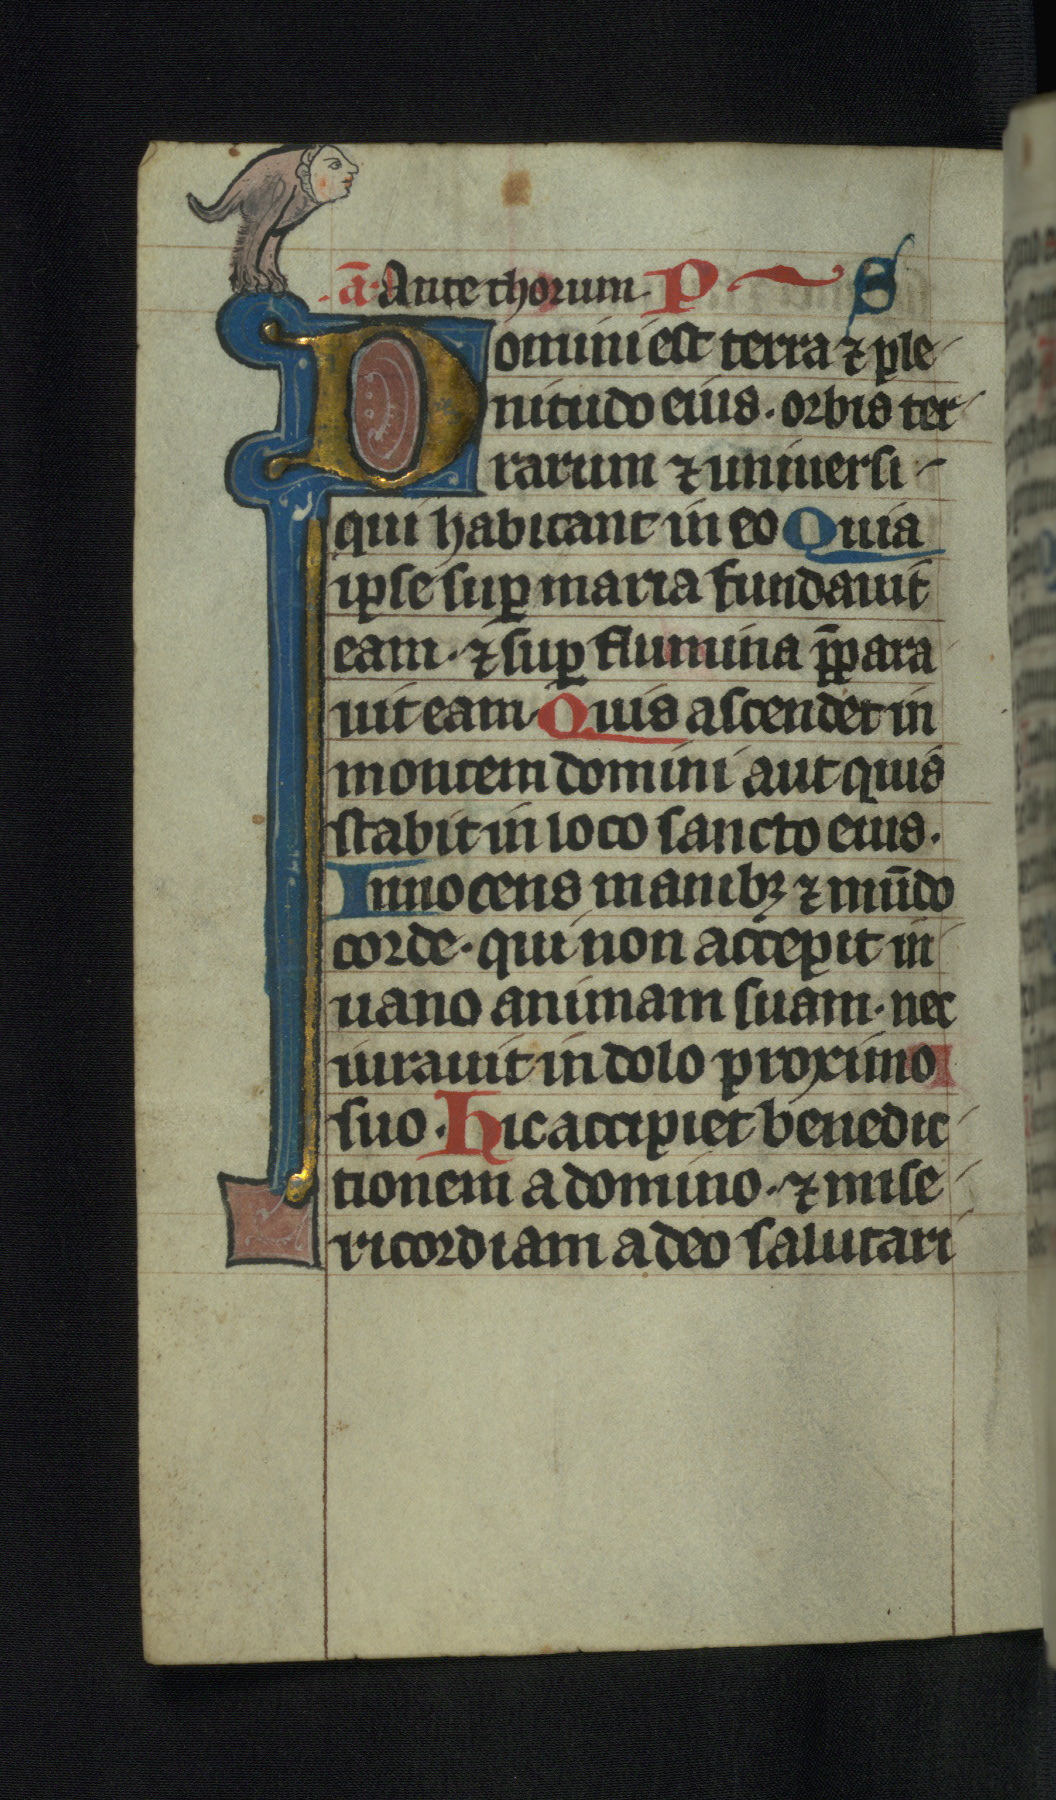 .ā. Ante thorum. P S
Domini est terra ⁊ ple
nitudo eius. orbis ter
rarum ⁊ uniuersi
qui habitant in eo Quia
ipse sup̲ maria fundauit
eam. ⁊ sup̲ flumina p̄para
uit eam. Quis ascendet in
montem domini aut quis
stabit in loco sancto eius.
Innocens manibꝫ ⁊ mūdo
corde. qui non accepit in
uano animam suam. nec
iurauit in dolo proximo
suo. Hic accipiet benedic
tionem a domino. ⁊ mise
ricordiam a deo salutari